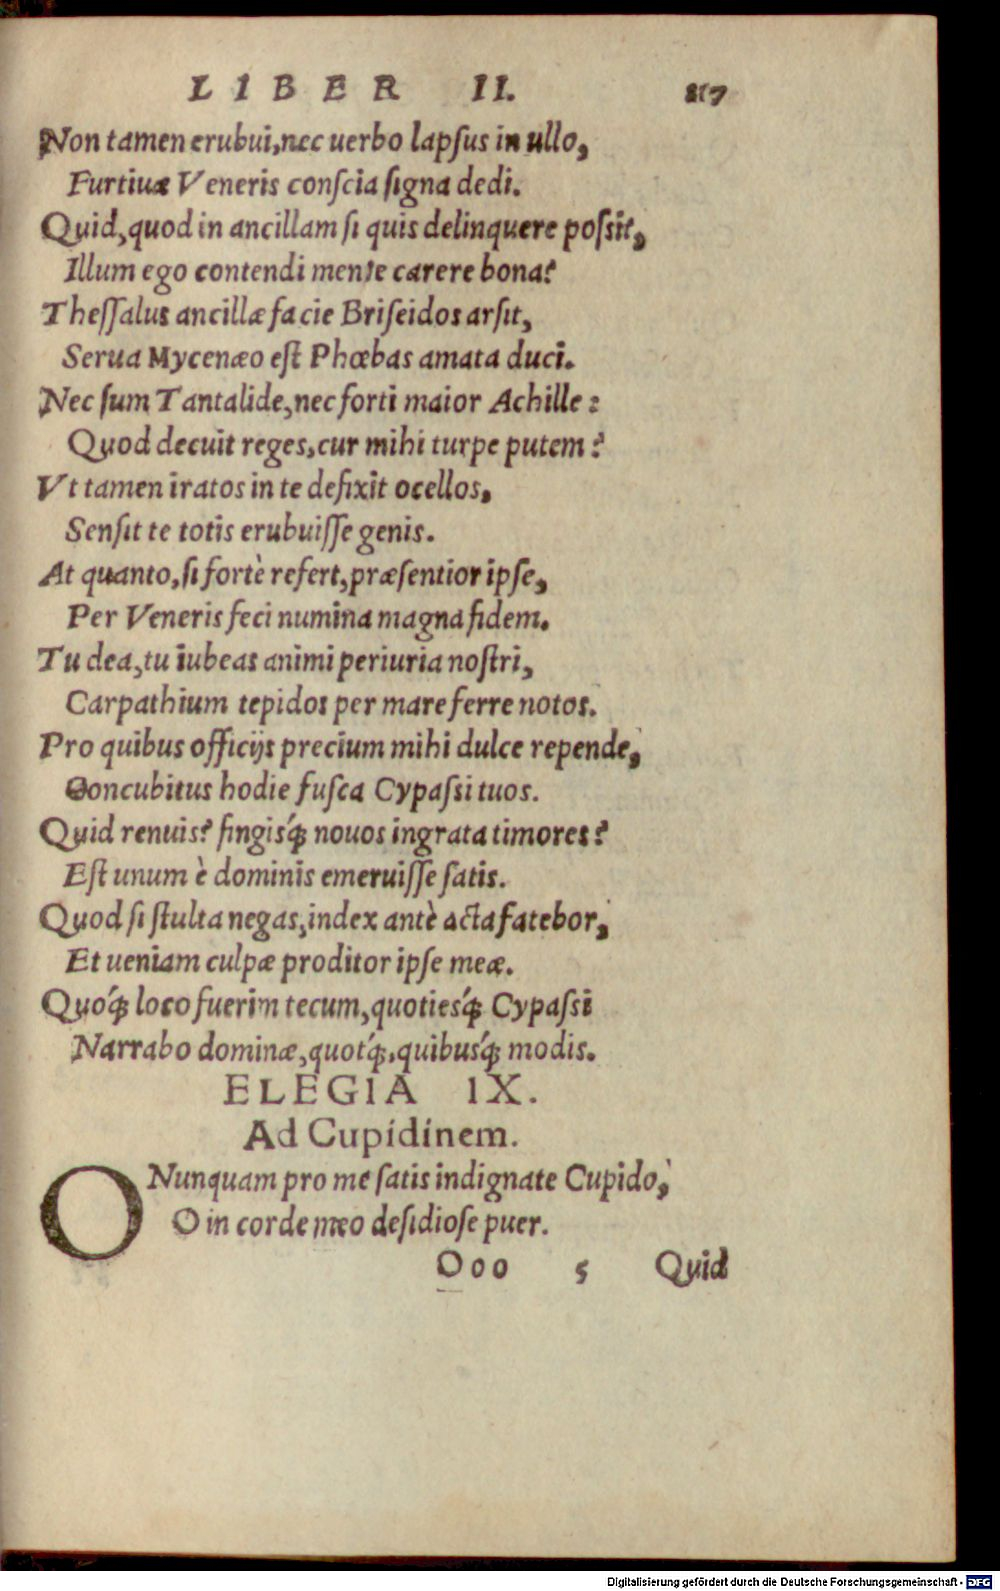 LIBER II. 217
Non tamen erubui, nec uerbo lapſus in ullo,
Furtiuæ Veneris conſcia ſigna dedi.
Quid, quod in ancillam ſi quis delinquere poſsit,
Illum ego contendi mente carere bona?
Theſſalus ancillæ facie Briſeidos arſit,
Serua Mycenæo eſt Phœbas amata duci.
Nec ſum Tantalide, nec forti maior Achille:
Quod decuit reges, cur mihi turpe putem?
Vt tamen iratos in te defixit ocellos,
Senſit te totis erubuiſſe genis.
At quanto, ſi fortè refert, præſentior ipſe,
Per Veneris feci numina magna fidem.
Tu dea, tu iubeas animi periuria noſtri,
Carpathium tepidos per mare ferre notos.
Pro quibus officijs precium mihi dulce repende,
Concubitus hodie fuſca Cypaſsi tuos.
Quid renuis? fingisq́ꝫ nouos ingrata timores?
Eſt unum è dominis emeruiſſe ſatis.
Quod ſi ſtulta negas, index antè acta fatebor,
Et ueniam culpæ proditor ipſe meæ.
Quóq́ꝫ loco fuerim tecum, quotiesq́ꝫ Cypaſsi
Narrabo dominæ, quotq́ꝫ, quibusq́ꝫ modis.
ELEGIA IX.
Ad Cupidinem.
O Nunquam pro me ſatis indignate Cupido,
O in corde meo deſidioſe puer.
Ooo 5 Quid
Digitalisierung gefördert durch die Deutsche Forschungsgemeinschaft - DFG